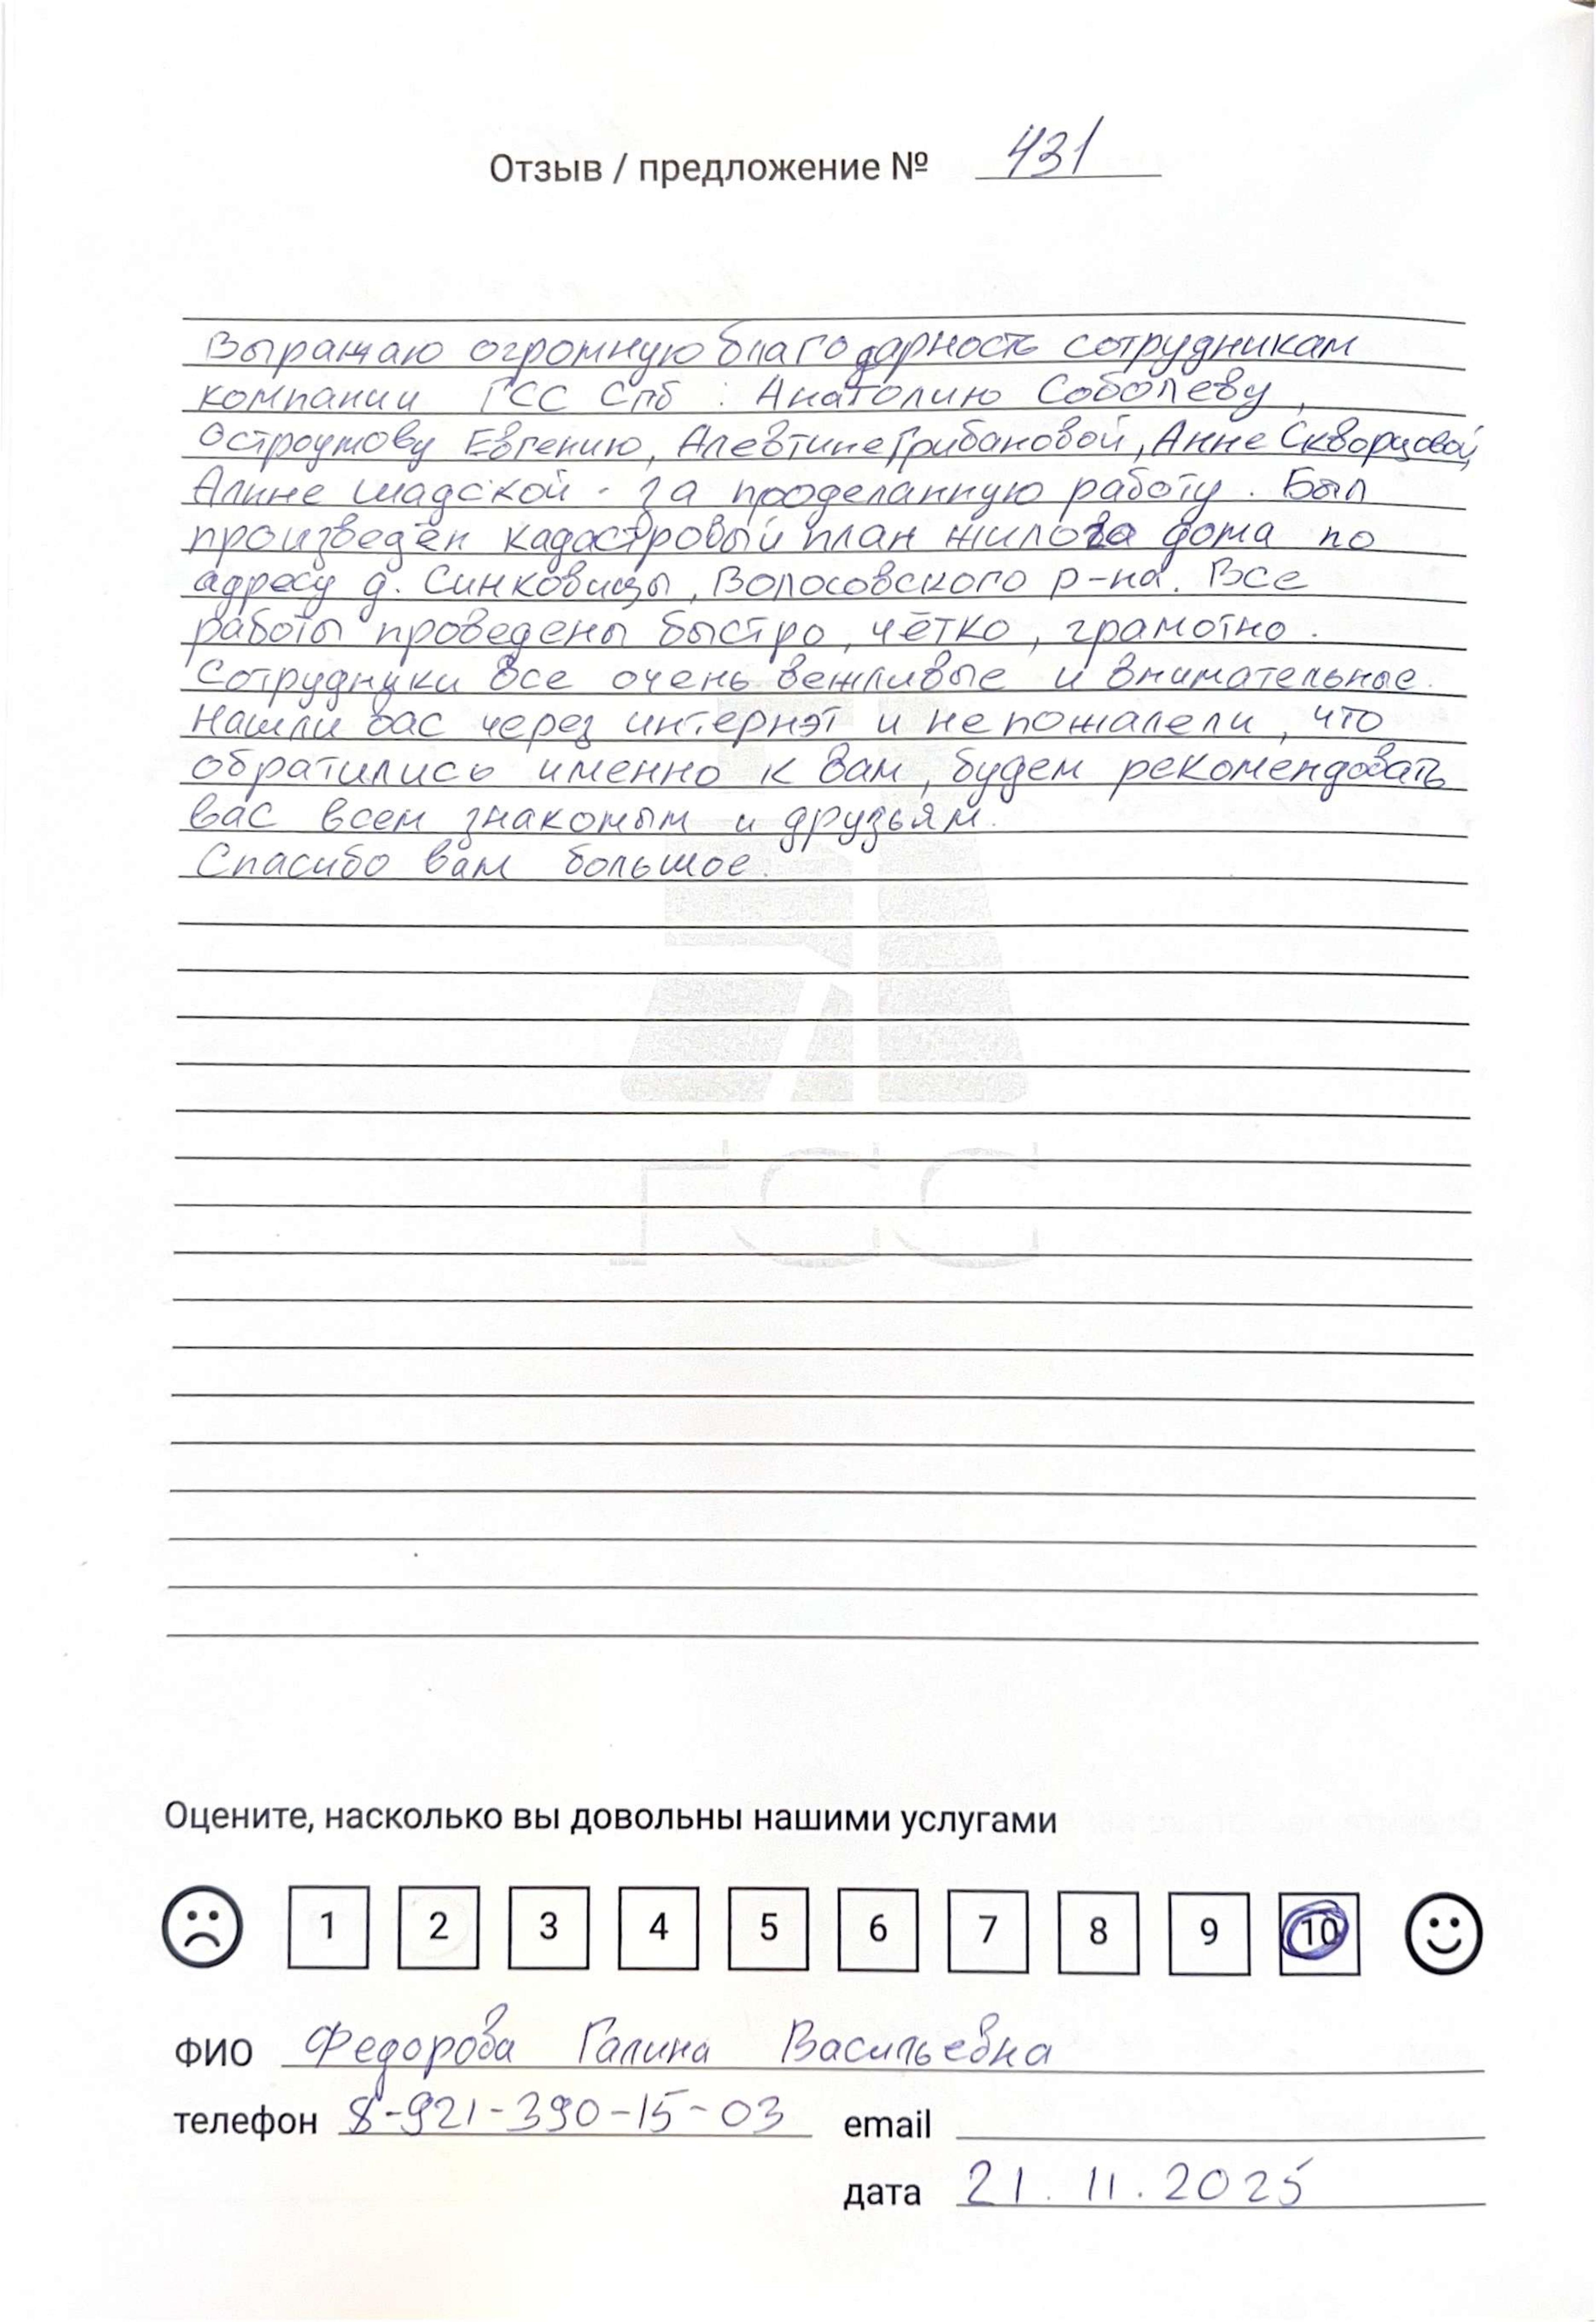 Отзыв / предложение № 431
Выражаю огромную благодарность сотрудникам
компании ГСС Спб : Анатолию Соболеву,
Остроумову Евгению, Алевтине Грибановой, Анне Скворцовой,
Алине Шадской - за проделанную работу. Был
произведён кадастровый план жилога дома по
адресу д. Синковицы, Волосовского р-на. Все
работы проведены быстро, чётко, грамотно.
Сотрудники все очень вежливые и внимательные.
Нашли вас через интернэт и не пожалели, что
обратились именно к вам, будем рекомендовать
вас всем знакомым и друзьям.
Спасибо вам большое.
ГСС
Оцените, насколько вы довольны нашими услугами
1 2 3 4 5 6 7 8 9 10
ФИО Федорова Галина Васильевна
телефон 8-921-390-15-03 email
дата 21.11.2025